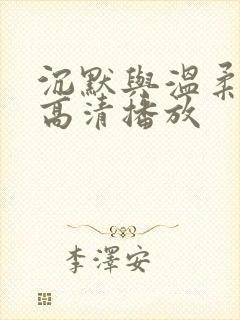 沉默與溫柔
高清播放
李澤安